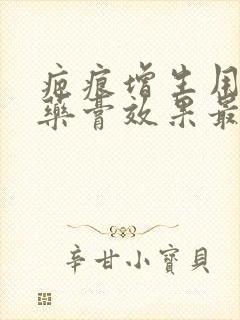 疤痕增生用
藥膏效果最
辛甘小寶貝